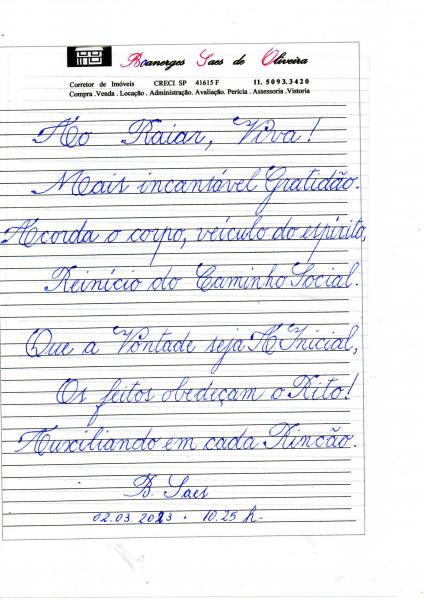 Boanerges Saes de Oliveira
Corretor de Imóveis CRECI SP 41615 F 11. 5093.3420
Compra . Venda . Locação . Administração. Avaliação. Perícia . Assessoria . Vistoria
Ao Raiar, Viva!
Mais incansável Gratidão.
Acorda o corpo, veículo do espírito,
Reinício do Caminho Social.
Que a Vontade seja A Inicial,
Os feitos obedeçam o Rito!
Auxiliando em cada Rincão.
B. Saes
02.03.2023 . 10.25 h.